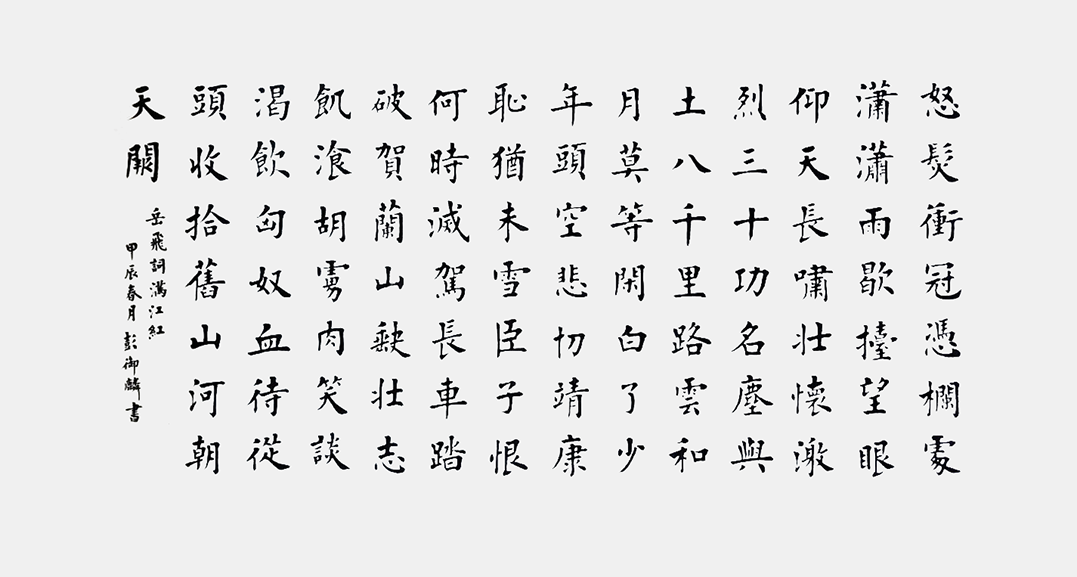 怒髮衝冠憑欄處
瀟瀟雨歇擡望眼
仰天長嘯壯懷激
烈三十功名塵與
土八千里路雲和
月莫等閑白了少
年頭空悲切靖康
恥猶未雪臣子恨
何時滅駕長車踏
破賀蘭山缺壯志
飢湌胡虜肉笑談
渴飲匈奴血待從
頭收拾舊山河朝
天闕
岳飛詞滿江紅
甲辰春月彭御麟書